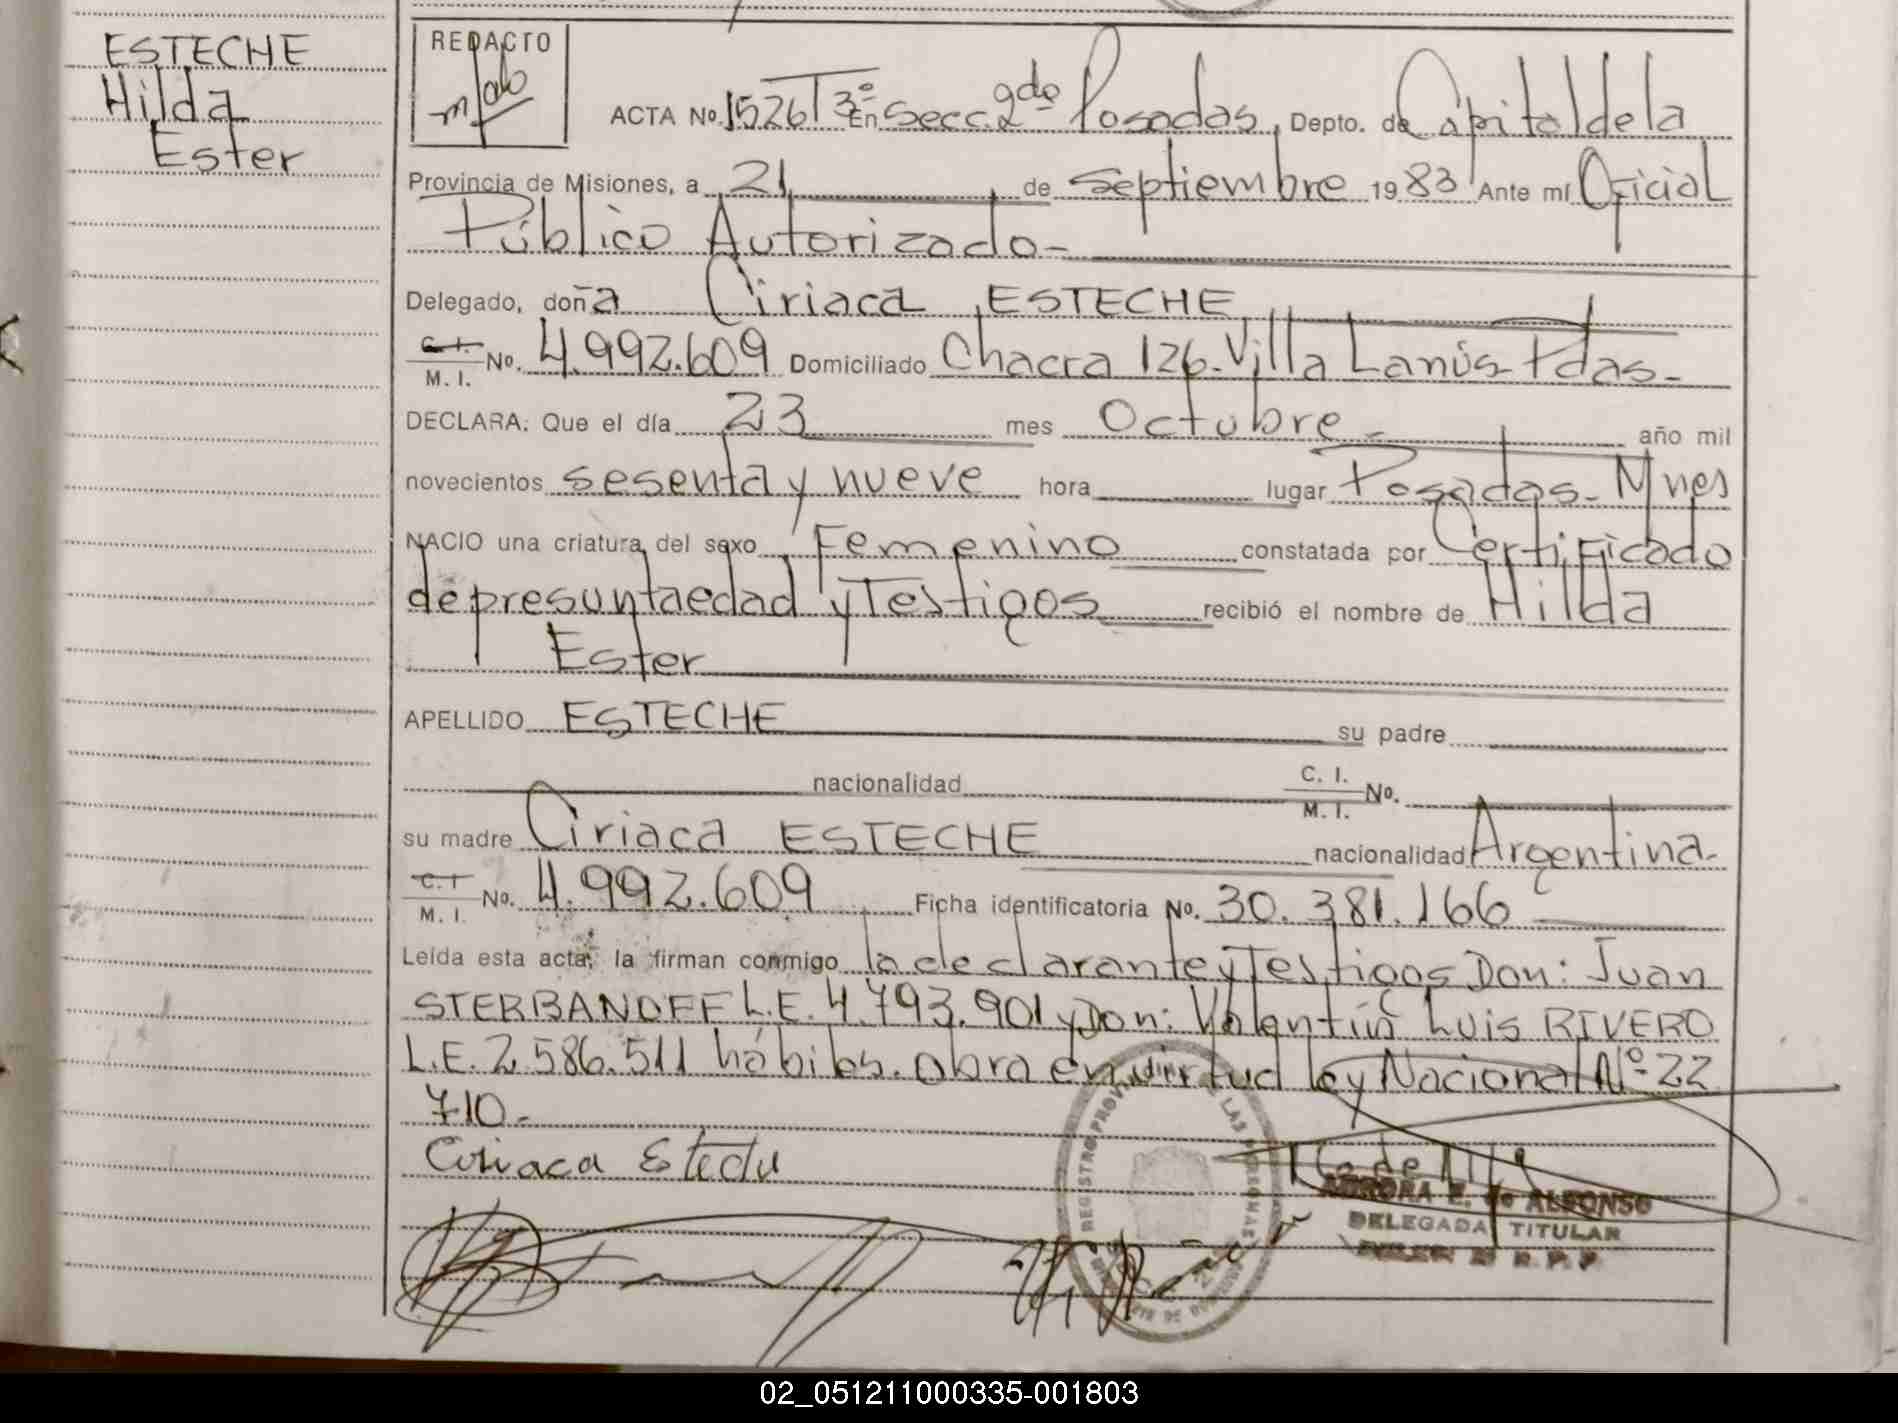 ESTECHE
Hilda
Ester
REDACTO
ACTA No. 1526 T 3º En Secc. 2da Posadas, Depto. de Capital de la
Provincia de Misiones, a 21 de Septiembre 1983 Ante mí Oficial
Público Autorizado-
Delegado, doña Ciriaca ESTECHE
C. I. M. I. No. 4.992.609 Domiciliado Chacra 126-Villa Lanús-Pdas-
DECLARA: Que el día 23 mes Octubre- año mil
novecientos sesenta y nueve hora lugar Posadas- Mnes
NACIO una criatura del sexo Femenino constatada por Certificado
de presunta edad y Testigos recibió el nombre de Hilda
Ester
APELLIDO ESTECHE su padre
nacionalidad C. I. M. I. No.
su madre Ciriaca ESTECHE nacionalidad Argentina-
C. I. M. I. No. 4.992.609 Ficha identificatoria No. 30.381.166
Leída esta acta, la firman conmigo la declarante y Testigos Don: Juan
STERBANOFF L.E. 4.793.901 y Don: Valentín Luis RIVERO
L.E. 2.586.511 hábiles. obra en virtud ley Nacional Nº 22
710-
Ciriaca Esteche
REGISTRO PROV DE LAS PERSONAS
AURORA E. de ALFONSO
DELEGADA TITULAR
R. P. P.
02_051211000335-001803